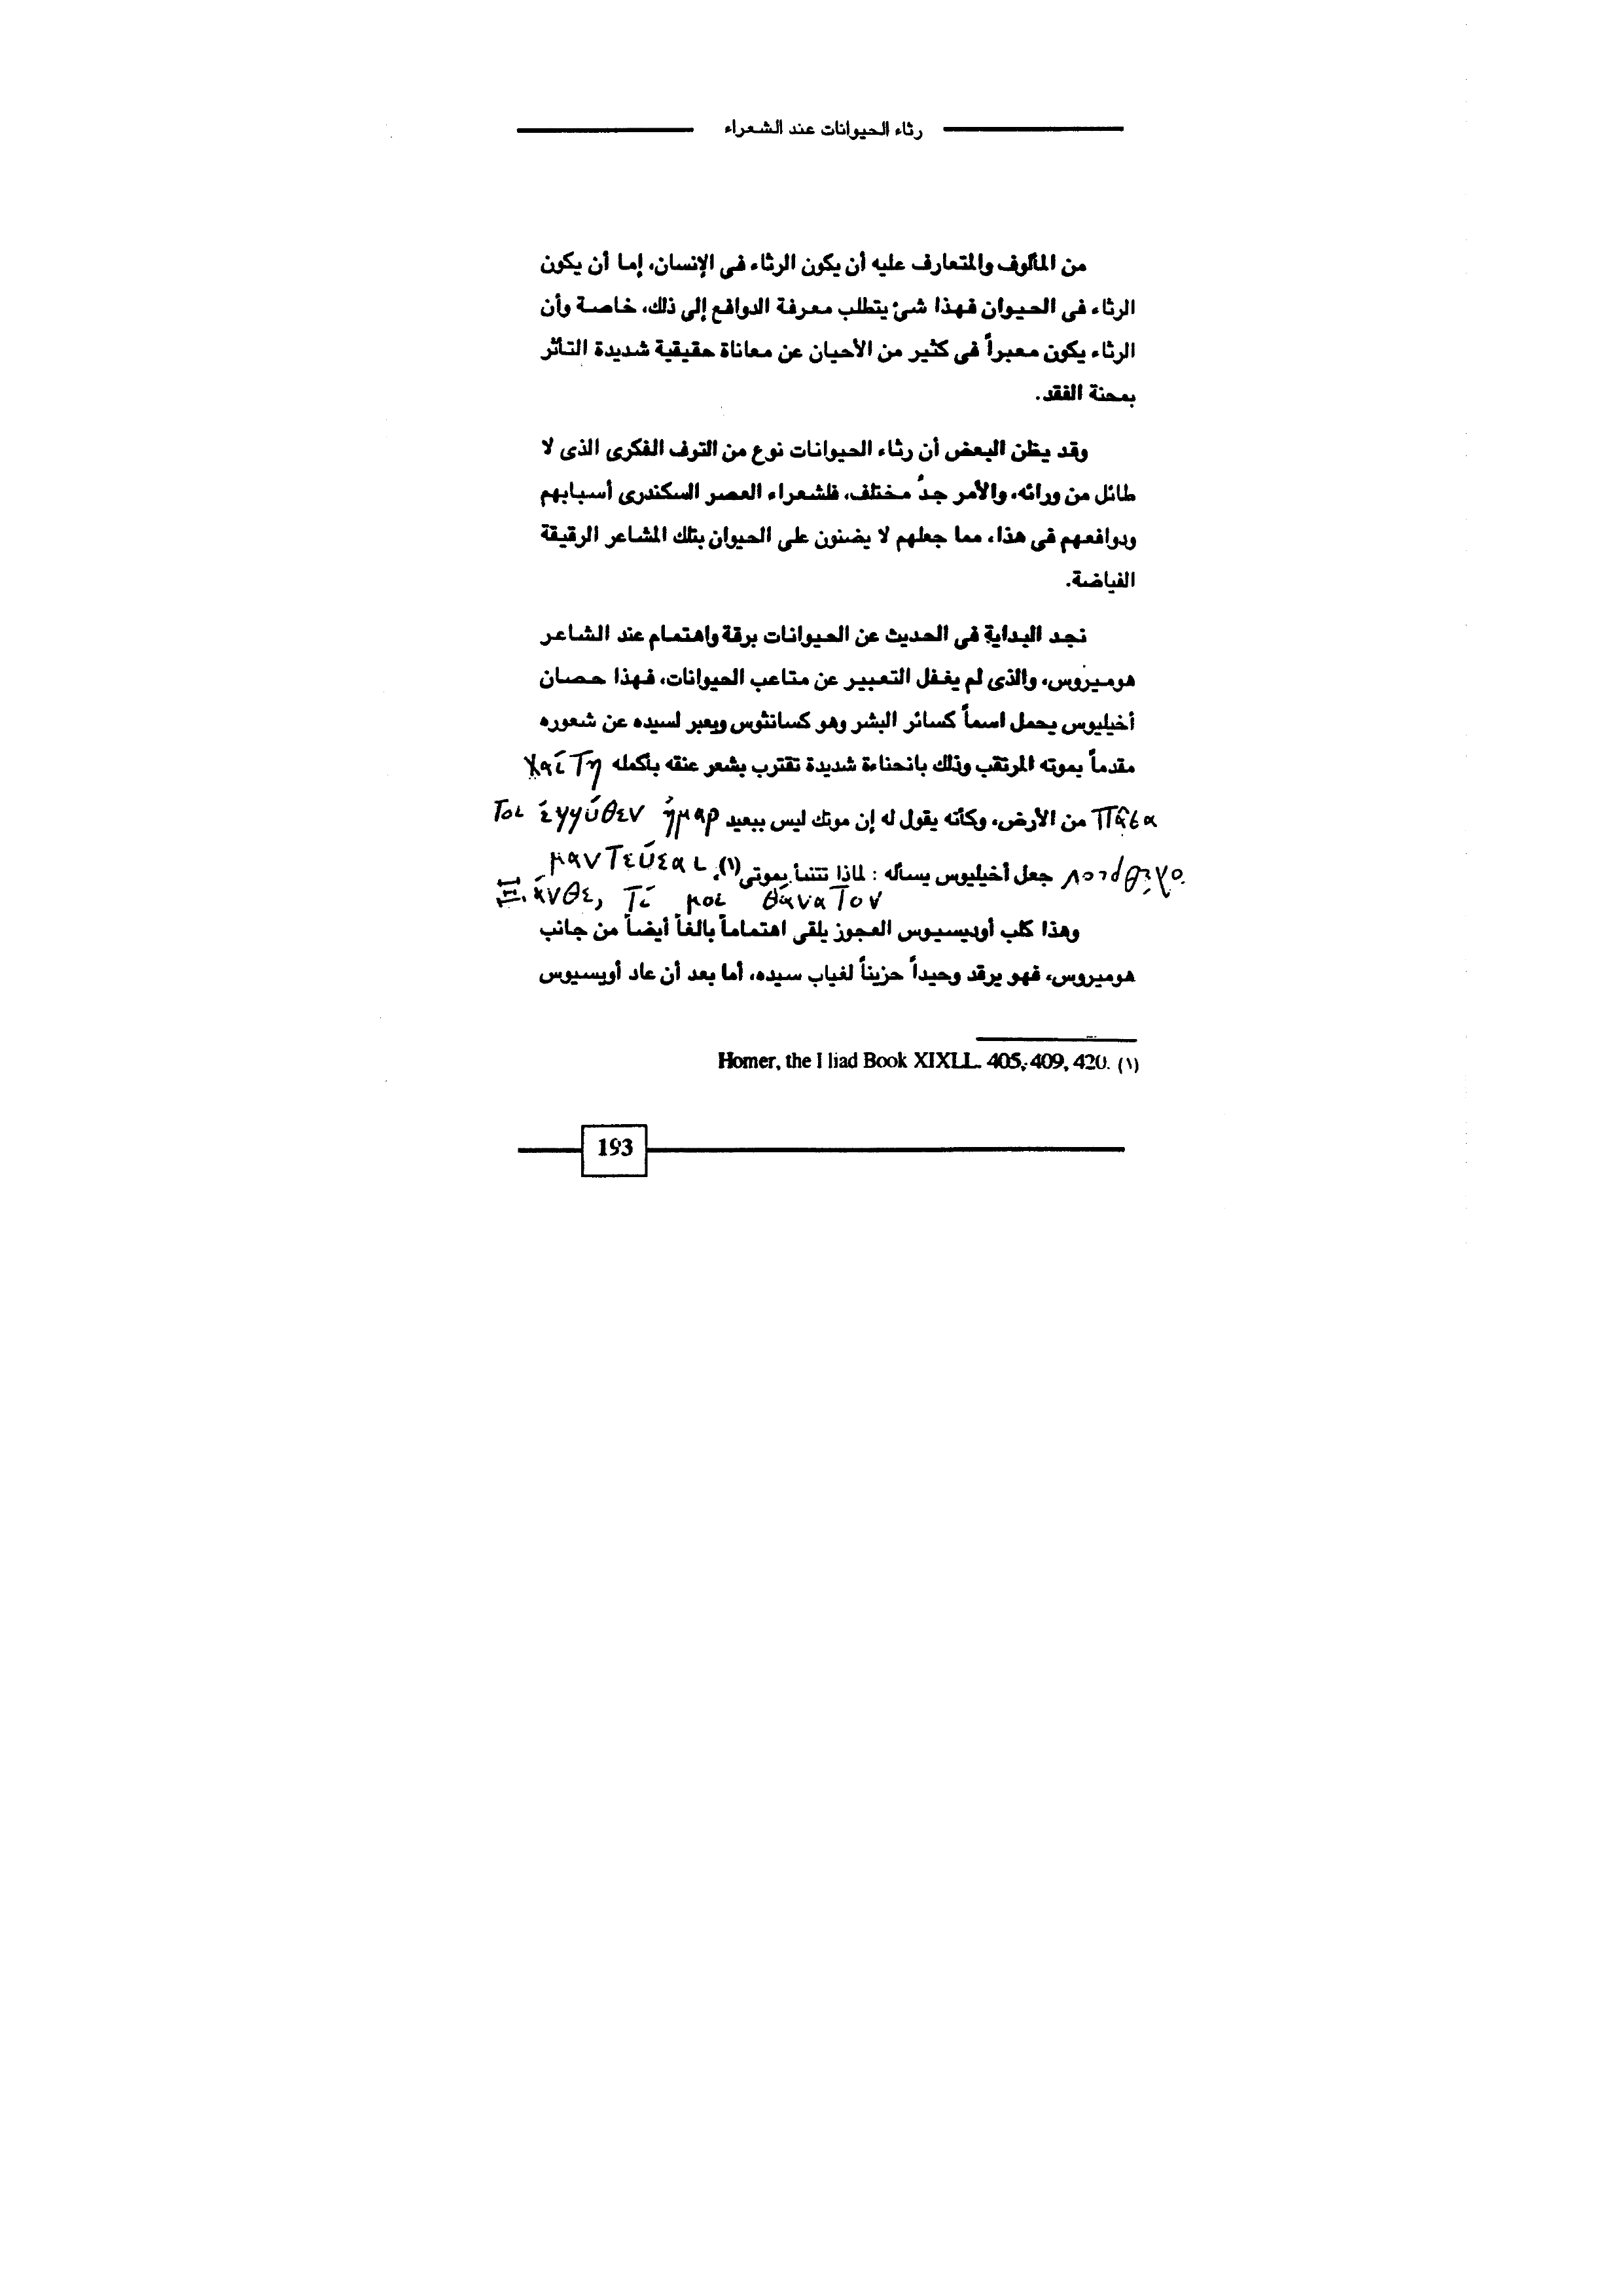 رثاء الحيوانات عند الشعراء
من المألوف والمتعارف عليه أن يكون الرثاء فى الإنسان، إما أن يكون
الرثاء فى الحيوان فهذا شئ يتطلب معرفة الدوافع إلى ذلك، خاصة وأن
الرثاء يكون معبراً فى كثير من الأحيان عن معاناة حقيقية شديدة التأثر
بمحنة الفقد.
وقد يظن البعض أن رثاء الحيوانات نوع من الترف الفكرى الذى لا
طائل من ورائه، والأمر جدُ مختلف، فلشعراء العصر السكندرى أسبابهم
ودوافعهم فى هذا، مما جعلهم لا يضنون على الحيوان بتلك المشاعر الرقيقة
الفياضة.
نجد البداية فى الحديث عن الحيوانات برقة واهتمام عند الشاعر
هوميروس، والذى لم يغفل التعبير عن متاعب الحيوانات، فهذا حصان
أخيليوس يحمل اسماً كسائر البشر وهو كسانثوس ويعبر لسيده عن شعوره
مقدماً بموته المرتقب وذلك بانحناءة شديدة تقترب بشعر عنقه بأكمله χαίτη
πᾶσα من الأرض، وكأنه يقول له إن موتك ليس ببعيد τοι ἐγγύθεν ἦμαρ
ὀλέθριον جعل أخيليوس يسأله : لماذا تتنبأ بموتى(١). μαντεύεαι
Ξάνθε, τί μοι θάνατον
وهذا كلب أوديسيوس العجوز يلقى اهتماماً بالغاً أيضاً من جانب
هوميروس، فهو يرقد وحيداً حزيناً لغياب سيده، أما بعد أن عاد أويسيوس
(١) Homer, the I liad Book XIXLL. 405, 409, 420.
193